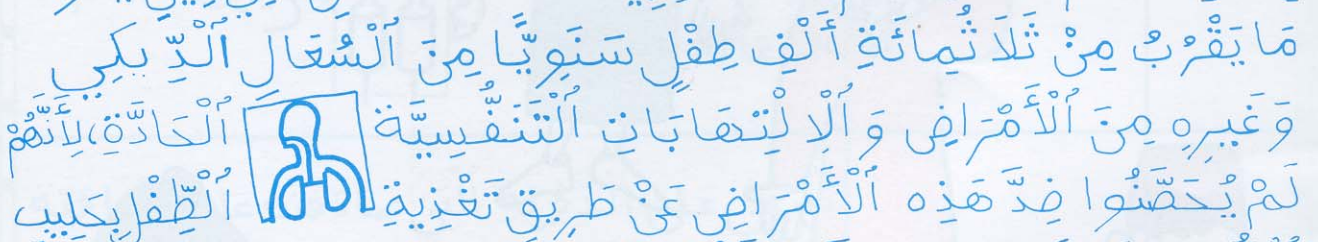 مَا يَقْرُبُ مِنْ ثَلَاثُمِائَةِ أَلْفِ طِفْلٍ سَنَوِيًّا مِنَ ٱلْسُّعَالِ ٱلْدِّيكِيِ
وَغَيْرِهِ مِنَ ٱلْأَمْرَاضِ وَٱلْاِلْتِهَابَاتِ ٱلْتَنَفُّسِيَّة ٱلْحَادَّةِ، لِأَنَّهُمْ
لَمْ يُحَصَّنُوا ضِدَّ هَذِه ٱلْأَمْرَاضِ عَنْ طَرِيقِ تَغْذِيةِ ٱلْطِّفْلِ بِحَلِيبِ